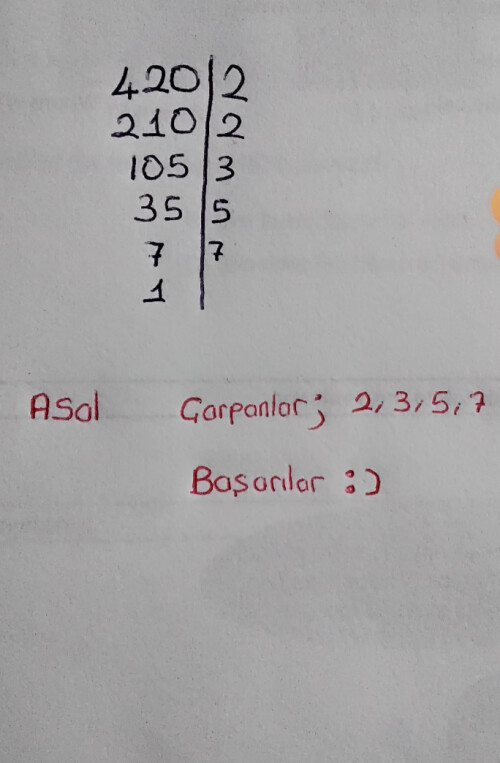 420|2
210|2
105|3
35|5
7|7
1|
Asal Çarpanlar; 2, 3, 5, 7
Başarılar :)